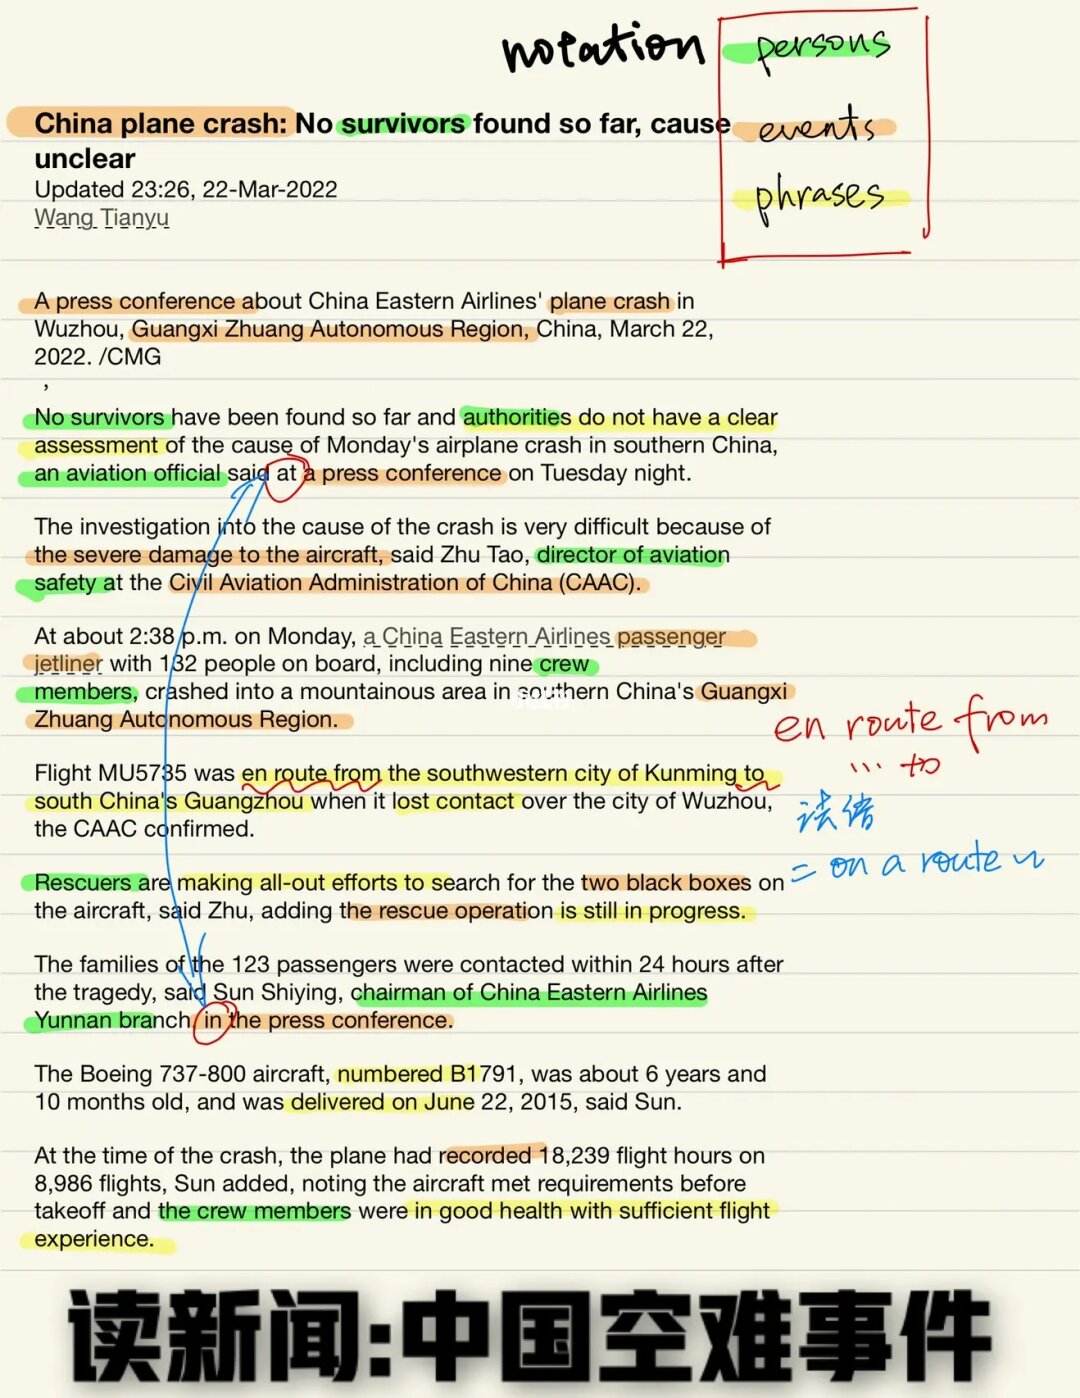 notation
persons
events
phrases
China plane crash: No survivors found so far, cause
unclear
Updated 23:26, 22-Mar-2022
Wang Tianyu
A press conference about China Eastern Airlines' plane crash in
Wuzhou, Guangxi Zhuang Autonomous Region, China, March 22,
2022. /CMG
,
No survivors have been found so far and authorities do not have a clear
assessment of the cause of Monday's airplane crash in southern China,
an aviation official said at a press conference on Tuesday night.
The investigation into the cause of the crash is very difficult because of
the severe damage to the aircraft, said Zhu Tao, director of aviation
safety at the Civil Aviation Administration of China (CAAC).
At about 2:38 p.m. on Monday, a China Eastern Airlines passenger
jetliner with 132 people on board, including nine crew
members, crashed into a mountainous area in southern China's Guangxi
Zhuang Autonomous Region.
en route from
... to
Flight MU5735 was en route from the southwestern city of Kunming to
south China's Guangzhou when it lost contact over the city of Wuzhou,
the CAAC confirmed.
法借
= on a route
Rescuers are making all-out efforts to search for the two black boxes on
the aircraft, said Zhu, adding the rescue operation is still in progress.
The families of the 123 passengers were contacted within 24 hours after
the tragedy, said Sun Shiying, chairman of China Eastern Airlines
Yunnan branch, in the press conference.
The Boeing 737-800 aircraft, numbered B1791, was about 6 years and
10 months old, and was delivered on June 22, 2015, said Sun.
At the time of the crash, the plane had recorded 18,239 flight hours on
8,986 flights, Sun added, noting the aircraft met requirements before
takeoff and the crew members were in good health with sufficient flight
experience.
读新闻:中国空难事件